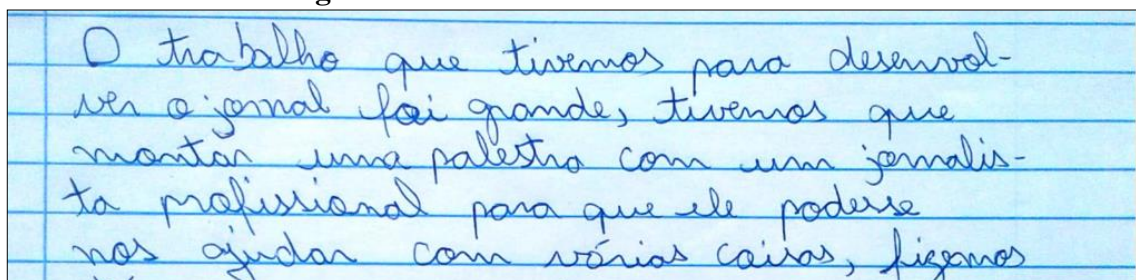 O trabalho que tivemos para desenvol-
ver o jornal foi grande, tivemos que
montar uma palestra com um jornalis-
ta profissional para que ele podesse
nos ajudar com várias coisas, fizemos